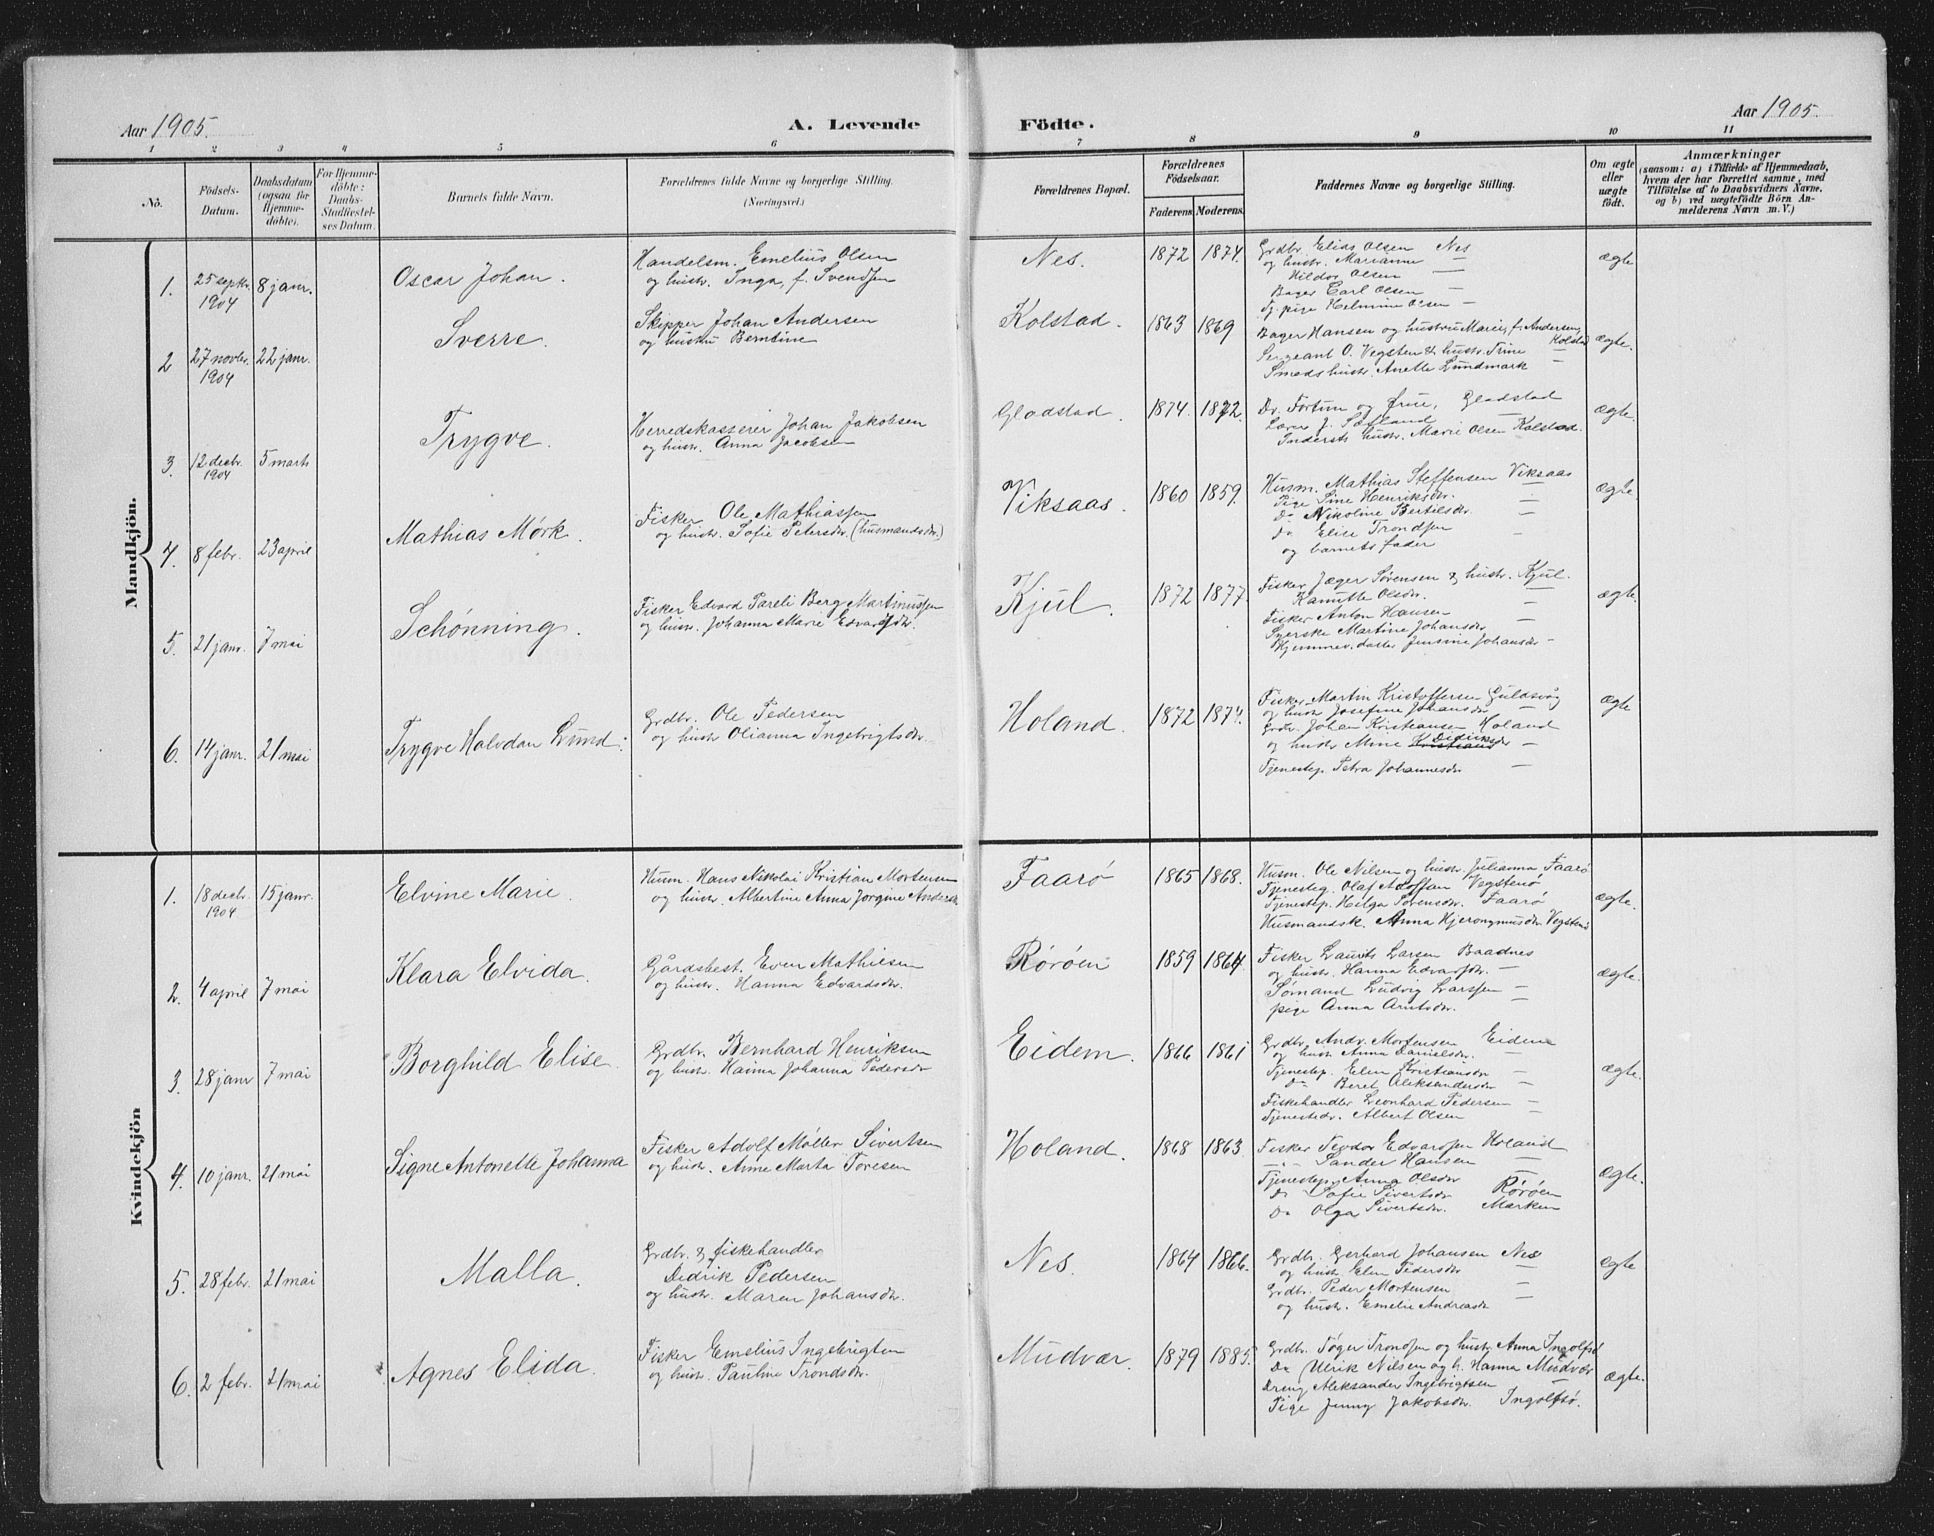 Aar 1905.
A. Levende
Födte.
Aar 1905.
1 2 3 4 5 6 7 8 9 10 11
No.
Födsels-
Datum.
Daabsdatum
(ogsaa for
Hjemme-
döbte).
For Hjemme-
döbte:
Daabs-
Stadfæstel-
ses Datum.
Barnets fulde Navn.
Forældrenes fulde Navne og borgerlige Stilling.
(Næringsvei.)
Forældrenes Bopæl.
Forældrenes
Födselsaar.
Faderens. Moderens.
Faddernes Navne og borgerlige Stilling.
Om ægte
eller
uægte
födt.
Anmærkninger
(saasom: a) i Tilfælde af Hjemmedaab,
hvem der har forrettet samme, med
Tilföielse af to Daabsvidners Navne.
og b) ved uægtefödte Börn An-
melderens Navn m. V.)
Mandkjön.
1. 25 septr. 1904 8 janr. Oscar Johan.
Handelsm. Emelius Olsen
og hustr. Inga, f. Svendsen
Nes. 1872 1874.
Grdbr. Elias Olsen Nes
og hustr. Marianne —
Hildor Olsen —
Bager Carl Olsen —
Tj. pige Helmine Olsen —
ægte
2 27 novbr. 1904 22 janr. Sverre.
Skipper Johan Andersen
og hustru Berntine
Kolstad. 1863 1869
Bager Hansen og hustru Marie, f. Andersen, Kolstad
Sergeant O. Vegsten & hustr. Trine —
Smeds hustr. Anette Lundmark —
ægte.
3. 12 decbr. 1904 5 marts Trygve.
Herredskasserer Johan Jakobsen
og hustr. Anna Jacobsen
Gladstad. 1874. 1872.
Dr. Fortun og frue, Gladstad
Lærer J. Søfland —
Indersts hustr. Marie Olsen Kolstad.
ægte.
4. 8 febr. 23 april Mathias Mørk.
Fisker Ole Mathiassen
og hustr. Sofie Petersdr. (husmandsdr.)
Viksaas. 1860 1859.
Husm. Mathias Steffensen Viksaas
Pige Sine Henriksdr. —
Do Nikoline Bertelsdr. —
Do Elise Trondsen —
og barnets fader
ægte.
5. 21 janr. 7 mai Schønning.
Fisker Edvard Pareli Berg Martinussen
og hustr. Johanna Marie Edvardsdr.
Kjul. 1872 1877.
Fisker Jæger Sørensen & hustr. Kjul.
Hanutte Olsdr. —
Fisker Anton Hansen —
Syerske Martine Johansdr. —
Hjemmev. datter Jensine Johansdr —
ægte.
6. 14 janr. 21 mai Trygve Halvdan Lund.
Grdbr. Ole Pedersen
og hustr. Olianna Ingebrigtsdr.
Holand. 1872 1874.
Fisker Martin Kristoffersen Guldsvåg
og hustr. Josefine Johansdr —
Grdr. Johan Kristiansen Holand
og hustr. Mine Didriksdr —
Tjenestep. Petra Johannesdr —
ægte
Kvindekjön
1. 18 decbr. 1904. 15 janr. Elvine Marie.
Husm. Hans Nikolai Kristian Mortensen
og hustr. Albertine Anna Jorgine Andersdr
Faarö 1865 1868.
Husm. Ole Nilsen og hustr. Julianna Faarö
Tjenesteg. Olaf Adolfsen Vegstenö
Tjenestep. Helga Sörensdr. Faarö
Husmandsk. Anna Hjeronymusdr. Vegstenö
ægte.
2. 4 april 7 mai Klara Elvida.
Gårdsbest. Even Mathiesen
og hustr. Hanna Edvardsdr.
Rörøen 1859 1864.
Fisker Lauvits Larsen Baadnes
og hustr. Hanna Edvardsdr. —
Sømand Ludvig Larssen —
pige Anna Arntsdr. —
ægte.
3. 28 janr 7 mai Borghild Elise.
Grdbr. Bernhard Henriksen
og hustr. Hanna Johanna Pedersdr
Eidem. 1866 1861
Grdbr. Andr. Mortensen Eidem
og hustr Anna Danielsdr. —
Tjenestep. Elen Kristiansdr —
Do Beret Aleksandersdr —
Fiskehandler Leonhard Pedersen —
Tjenestedr. Albert Olsen —
ægte.
4. 10 janr. 21 mai Signe Antonette Johanna
Fisker Adolf Møller Sivertsen
og hustr. Anne Marta Toresen
Holand. 1868 1863.
Fisker Teodor Edvardsen Holand
—"— Sander Hansen —
Tjenestep. Anna Olsdr —
Do Sofie Sivertsdr Rörøen
Do Olga Sivertsdr. Marken
ægte.
5. 28 febr. 21 mai Malla.
Grdbr. & fiskehandler
Didrik Pedersen
og hustr. Maren Johansdr.
Nes. 1864 1866.
Grdbr. Gerhard Johansen Nes
og hustr. Elen Pedersdr —
Grdbr. Peder Mortensen —
og hustr. Emelie Andreasdr —
ægte
6. 2 febr. 21 mai Agnes Elida.
Fisker Emelius Ingebrigtsen
og hustr. Pauline Trondsdr.
Mudvær. 1879 1885.
Grdbr. Tøger Trondsen og hustr. Anna Ingolfsø
Do Ulrik Nilsen og h. Hanna Mudvær
Dreng Aleksander Ingebrigtsen —
Pige Jenny Jakobsdr. Ingolfsø.
ægte.